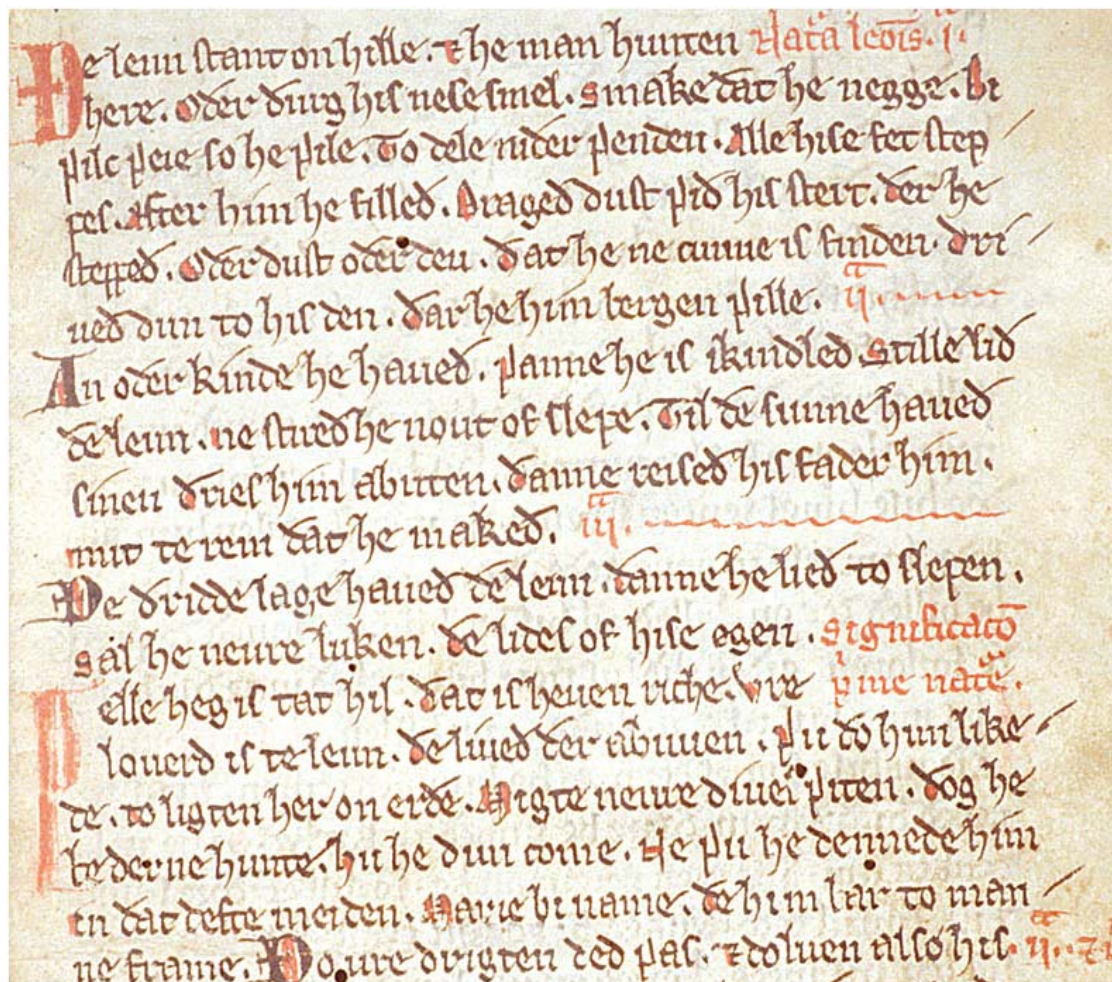 Ðe leun stant on hille. ⁊ he man hunten Natura leonis. i.
here. Oðer ðurg his nese smel. Smake ðat he negge. Bi
ƿilc ƿeie so he ƿile. To dele niðer ƿenden. Alle hise fet step
pes. After him he filleð. Drageð dust ƿið his stert. ðer he
steppeð. Oðer dust oðer deu. ðat he ne cunne is finden. dri
ueð dun to his den. ðar he him bergen ƿille. ii.
An oðer kinde he haueð. ƿanne he is ikindled Stille lið
ðe leun. ne stireð he nout of slepe. Til ðe sunne haueð
sinen ðries him abuten. ðanne reiseð his fader him.
mit te rem ðat he makeð. iii.
Ðe ðridde lage haueð ðe leun. ðanne he lieð to slepen.
Sal he neure luken. ðe lides of hise egen. Significacio
elle heg is tat hil. ðat is heuen riche. Vre prime nature.
louerd is te leun. ðe liueð ðer abuuen. ƿu ðo him like
de. to ligten her on erðe. Migte neure diuel ƿiten. ðog he
be derne hunte. hu he dun come. Ne ƿu he dennede him
in ðat defte meiden. Marie bi name. ðe him bar to man
ne frame. Ðo ure drigten ded ƿas. ⁊ doluen also his. ii.